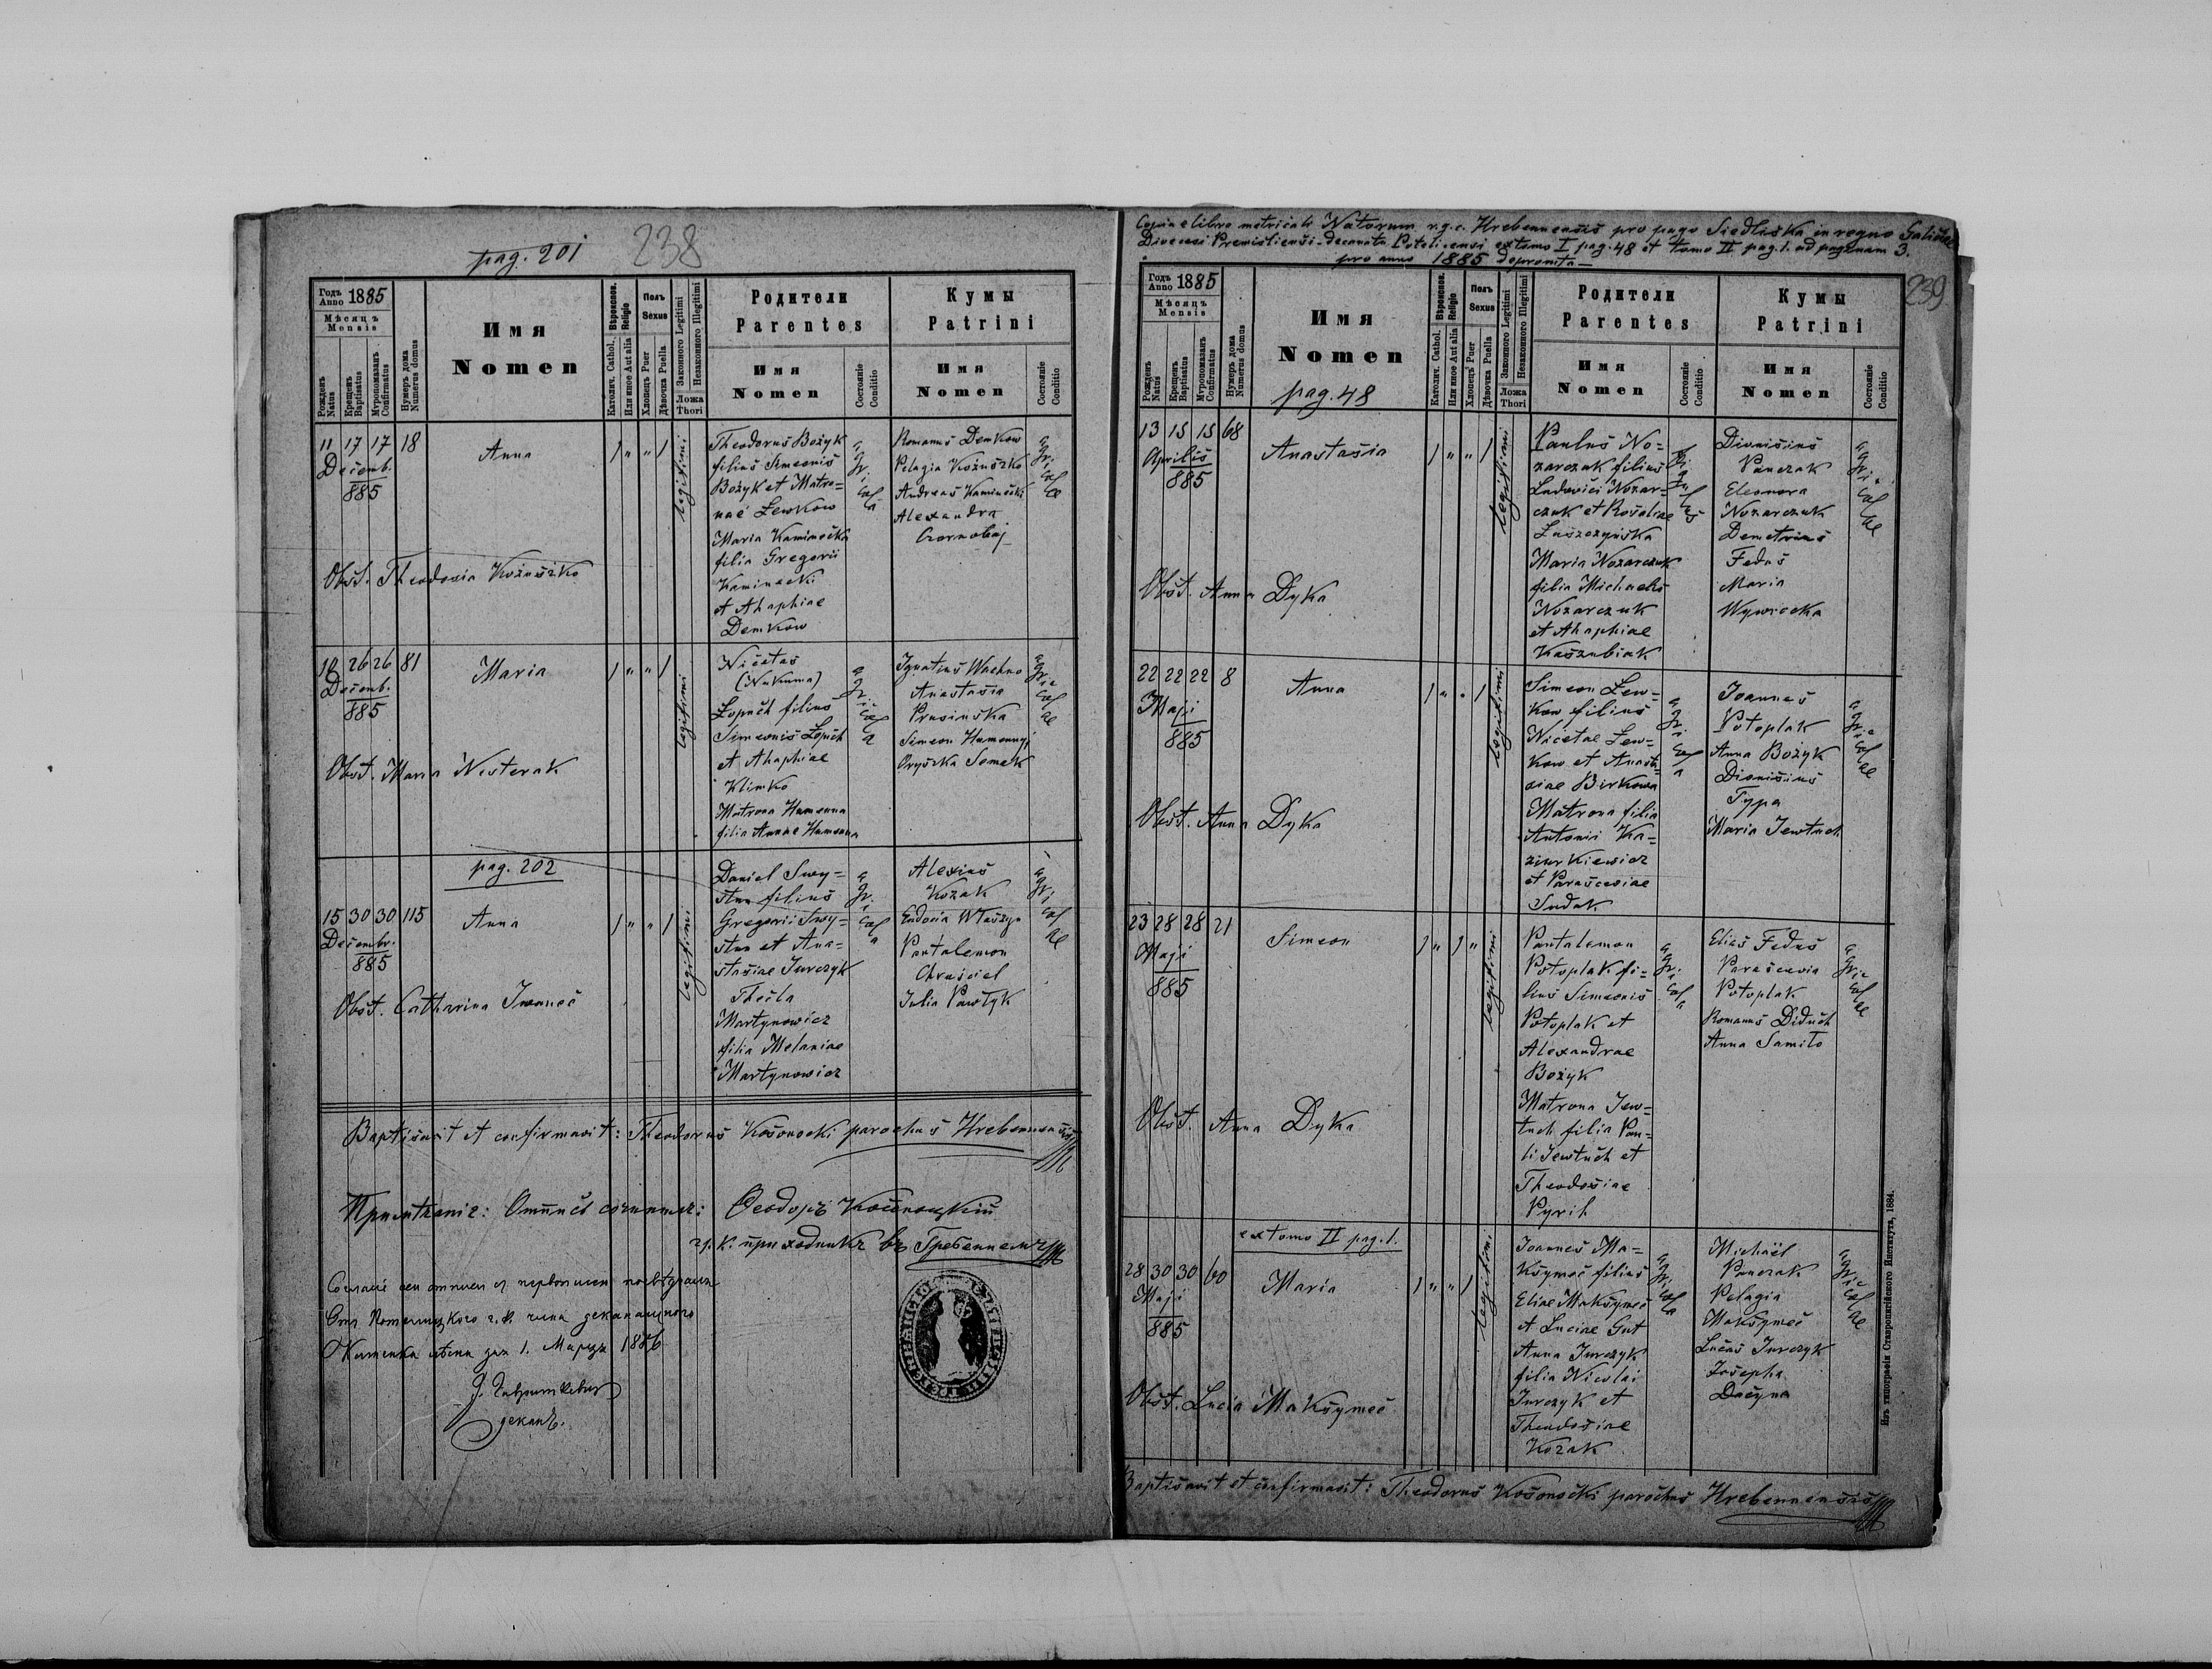 pag. 201
238
Годъ Anno 1885
Мѣсяцъ Mensis
Рожденъ Natus
Крещенъ Baptisatus
Мѵропомазанъ Confirmatus
Нумеръ дома Numerus domus
Имя Nomen
Вѣроисков. Religio
Католич. Cathol.
Или иное Aut alia
Полъ Sexus
Хлопецъ Puer
Дѣвочка Puella
Законного Legitimi
Незаконного Illegitimi
Ложа Thori
Родители Parentes
Имя Nomen
Состояніе Conditio
Кумы Patrini
Имя Nomen
Состояніе Conditio
11 17 17 18
Decemb.
885
Anna
1 " " 1
legitimi
Theodorus Bożyk
filius Simeonis
Bożyk et Matro=
nae Lewkow
Maria Kaminecka
filia Gregorii
Kaminecki
et Ahaphiae
Demkow
agricola
Romanus Demkow
Pelagia Kożuszko
Andreas Kaminecki
Alexandra
Czornobaj
agricolae
Obst. Theodosia Kożuszko
18 26 26 81
Decemb.
885
Maria
1 " " 1
legitimi
Nicetas
(Nukuma)
Łopuch filius
Simeonis Łopuch
et Ahaphiae
Klimko
Matrona Humenna
filia Annae Humenna
agricola
Ignatius Wachno
Anastasia
Prusinska
Simeon Humennyj
Oryszka Semak
agricolae
Obst. Maria Nesterak
pag. 202
15 30 30 115
Decembr.
885
Anna
1 " " 1
legitimi
Daniel Swy=
stun filius
Gregorii Swy=
stun et Ana=
stasiae Jurczyk
Thecla
Martynowicz
filia Melaniae
Martynowicz
agricola
Alexius
Kozak
Eudocia Właszyn
Pantalemon
Chruściel
Julia Pawłyk
agricolae
Obst. Catharina Iwanec
Baptisavit et confirmavit: Theodorus Kosonocki parochus Hrebennensis
Примѣчаніе: Отписъ сочинилъ: Ѳеодоръ Косоноцкій
гр. к. приходникъ въ Гребенномъ
Отъ Потелицкого г. к. чина деканального
Каменка лѣсна дня 1. Марта 1886
деканъ.
Copia e libro metricali Natorum r.g.c. Hrebennensis pro pago Siedliska in regno Galiciae
Dioecesi Premisliensi decanatu Potelicensi ex tomo I pag. 48 et tomo II pag. 1. ad paginam 3.
pro anno 1885 deprompta
239
Годъ Anno 1885
Мѣсяцъ Mensis
Рожденъ Natus
Крещенъ Baptisatus
Мѵропомазанъ Confirmatus
Нумеръ дома Numerus domus
Имя Nomen
pag. 48
Вѣроисков. Religio
Католич. Cathol.
Или иное Aut alia
Полъ Sexus
Хлопецъ Puer
Дѣвочка Puella
Законного Legitimi
Незаконного Illegitimi
Ложа Thori
Родители Parentes
Имя Nomen
Состояніе Conditio
Кумы Patrini
Имя Nomen
Состояніе Conditio
13 15 15 68
Aprilis
885
Anastasia
1 " " 1
legitimi
Paulus No=
zarczuk filius
Ludovici Nozar=
czuk et Rosaliae
Laszczyńska
Maria Nozarczuk
filia Michaelis
Nozarczuk
et Ahaphiae
Kaszubiak
Dionisius
Panczak
Eleonora
Nozarczuk
Demetrius
Fedus
Maria
Wywiocka
agricolae
Obst. Anna Dyka
22 22 22 8
Maji
885
Anna
1 " " 1
legitimi
Simeon Lew=
kow filius
Nicetae Lew=
kow et Anasta=
siae Birkowa
Matrona filia
Antonii Ka=
ziurkiewicz
et Parasceviae
Sudak
agricola
Joannes
Potoplak
Anna Bożyk
Dionisius
Typa
Maria Jewtuch
agricolae
Obst. Anna Dyka
23 28 28 21
Maji
885
Simeon
1 " 1 "
legitimi
Pantalemon
Potoplak fi=
lius Simeonis
Potoplak et
Alexandrae
Bożyk
Matrona Jew=
tuch filia Pau=
li Jewtuch et
Theodosiae
Pyrih
agricola
Elias Fedus
Parascevia
Potoplak
Romanus Diduch
Anna Samiło
agricolae
Obst. Anna Dyka
ex tomo II pag. 1.
28 30 30 60
Maji
885
Maria
1 " " 1
legitimi
Joannes Ma=
ksymec filius
Eliae Maksymec
et Luciae Gut
Anna Jurczyk
filia Nicolai
Jurczyk et
Theodosiae
Kozak
agricola
Michael
Panczak
Pelagia
Maksymec
Lucas Jurczyk
Josepha
Daćyna
agricolae
Obst. Lucia Maksymec
Baptisavit et confirmavit: Theodorus Kosonocki parochus Hrebennensis
Изъ типографіи Ставропигійского Института, 1884.